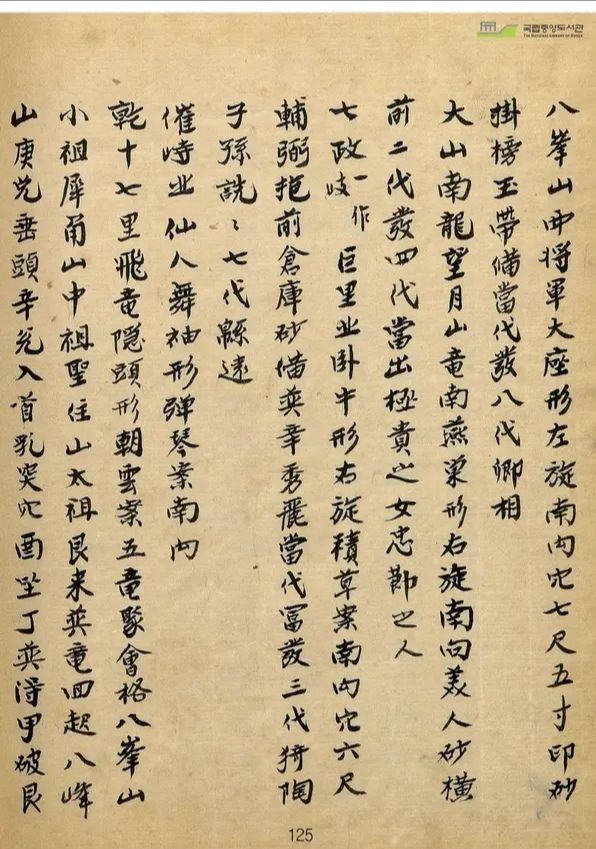 국립중앙도서관
THE NATIONAL LIBRARY OF KOREA
八峯山西将軍大座形左旋南向穴七尺五寸印砂
掛榜玉帶備當代發八代卿相
大山南龍望月山竜南燕巢形右旋南向美人砂橫
前二代發四代當出極貴之女忠節之人
七政一作岐巨里业卧牛形右旋積草案南向穴六尺
輔弼拒前倉庫砂備巽辛秀麗當代冨發三代猗陶
子孫詵〻七代綿遠
催峙业仙人舞袖形弾琴案南向
乾十七里飛竜隠頭形朝雲案五竜聚會格八峯山
小祖犀甬山中祖聖住山太祖艮来巽竜回起八峰
山庚兌垂頭辛兌入首乳突穴酉坐丁巽淂甲破艮
125